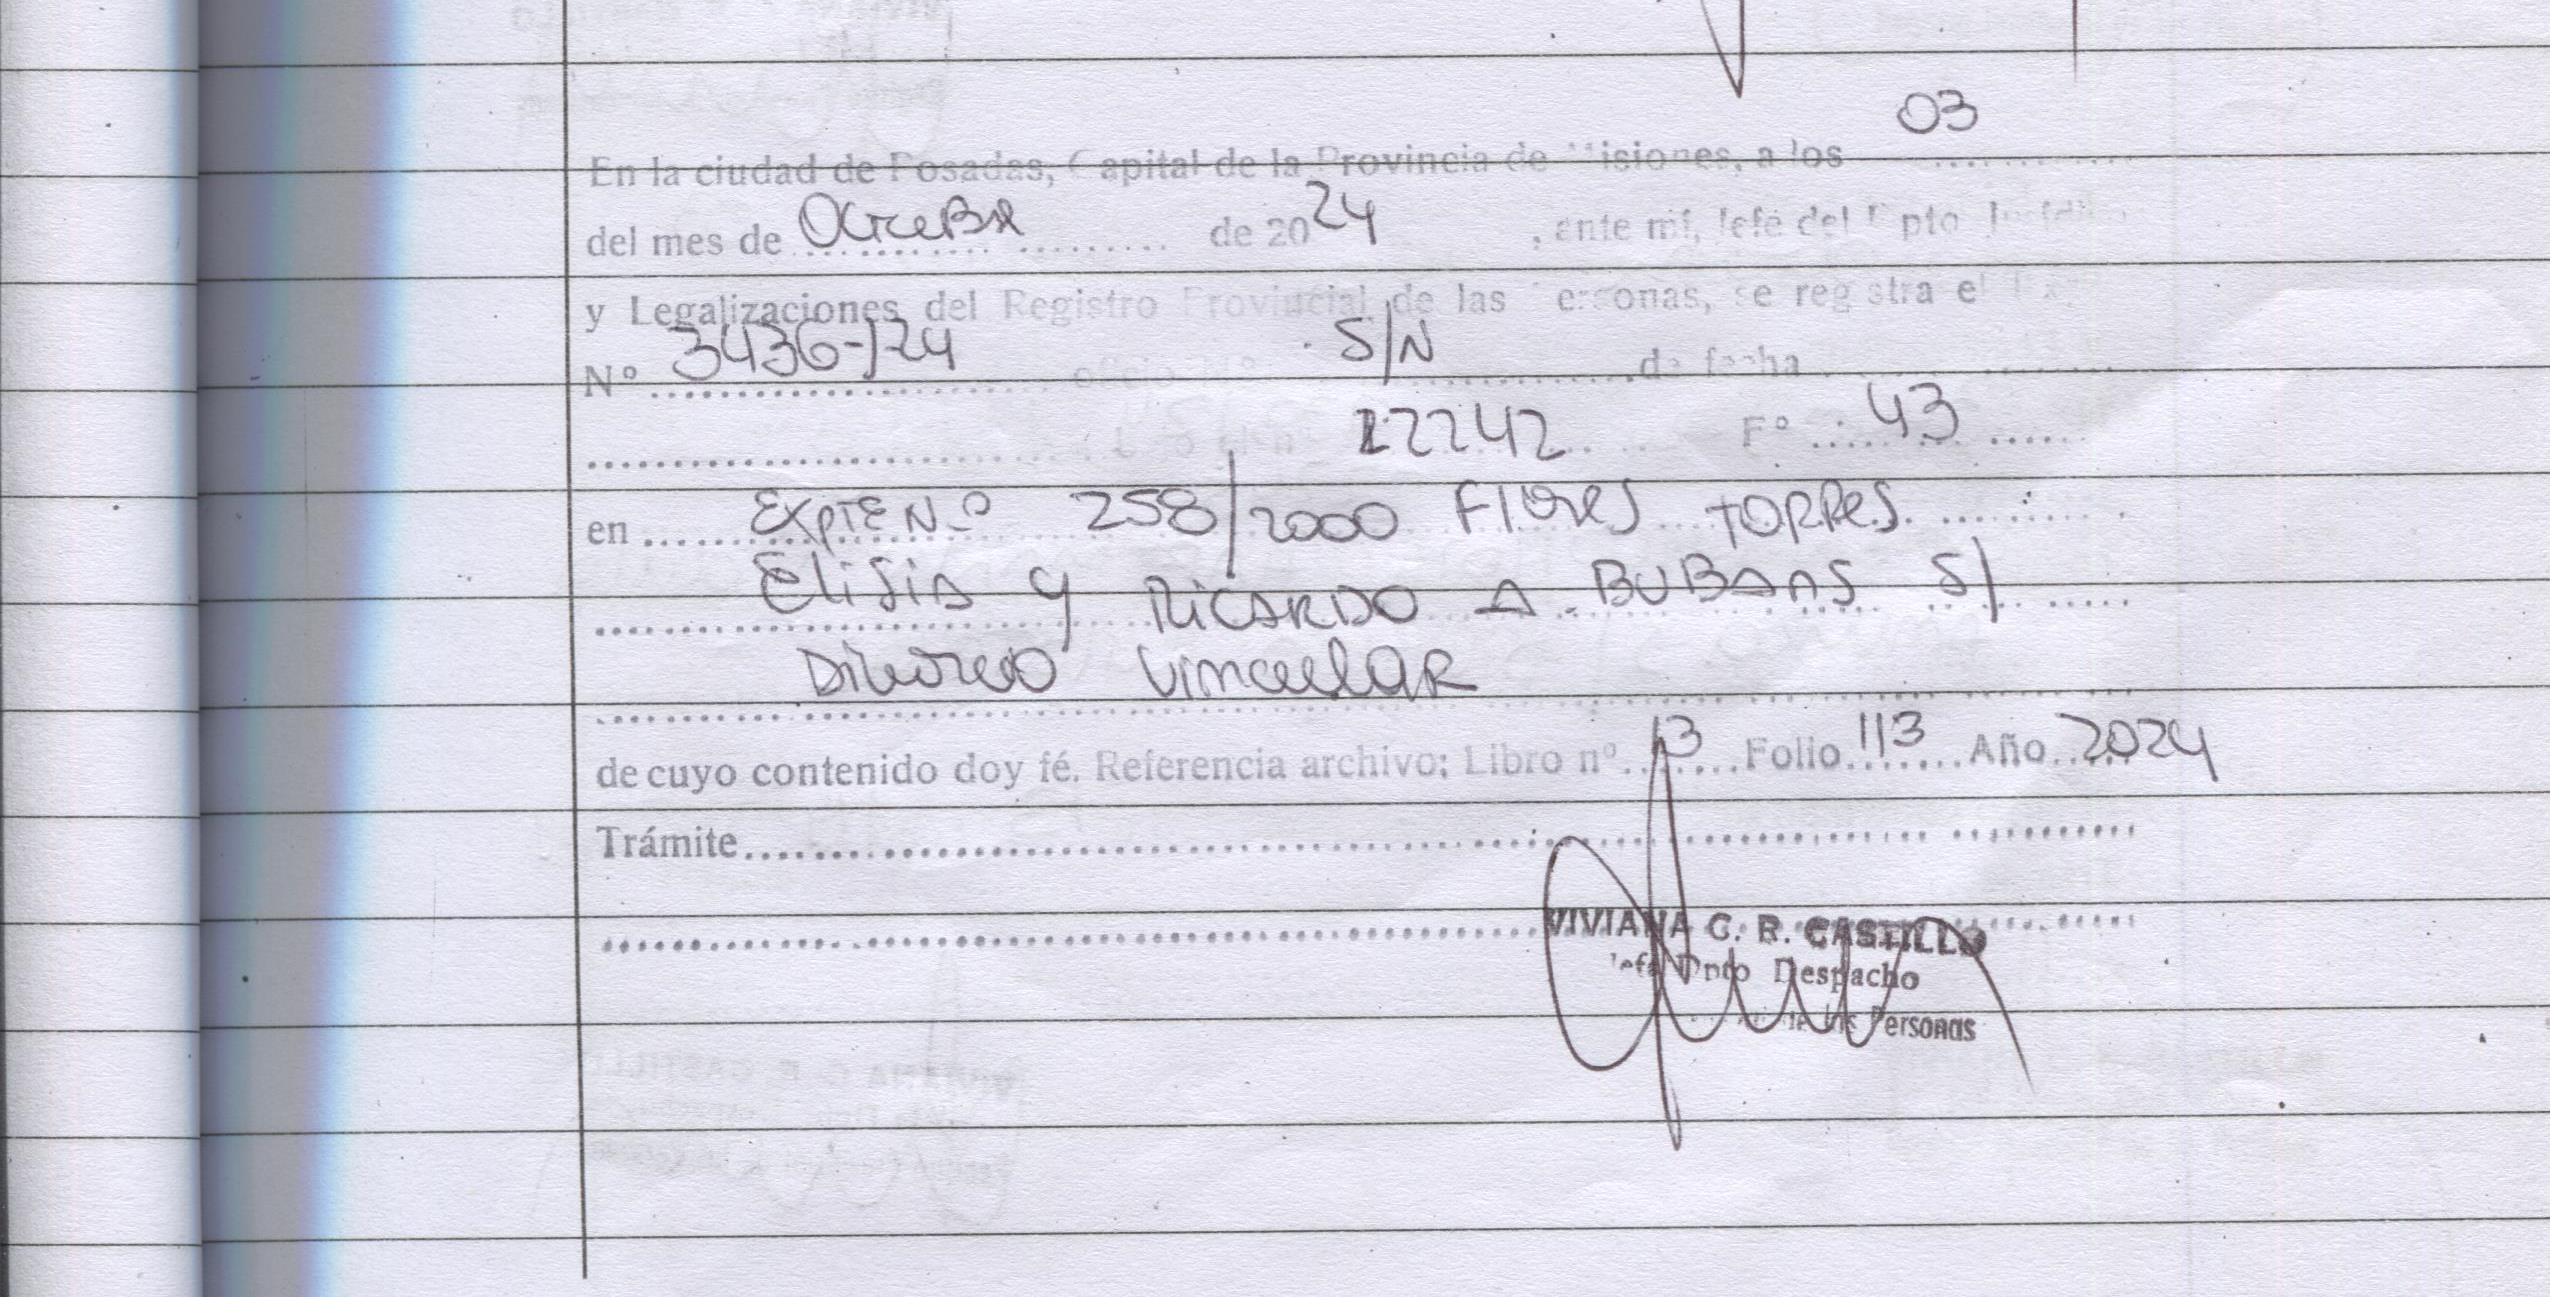 03
En la ciudad de Posadas, Capital de la Provincia de Misiones, a los
del mes de Octubre de 2024, ante mí, Jefe del Dpto
y Legalizaciones del Registro Provincial de las Personas, se registra el
Nº 3436-/24 oficio S/N de fecha
22242 Fº 43
en Expte Nº 258/2000 Flores Torres
Elisia y Ricardo A. Bubans S/
Divorcio Vincular
de cuyo contenido doy fé. Referencia archivo; Libro nº 13 Folio 113 Año 2024
Trámite
VIVIANA C. R. CASTILLO
Jefa Dpto Despacho
de las Personas